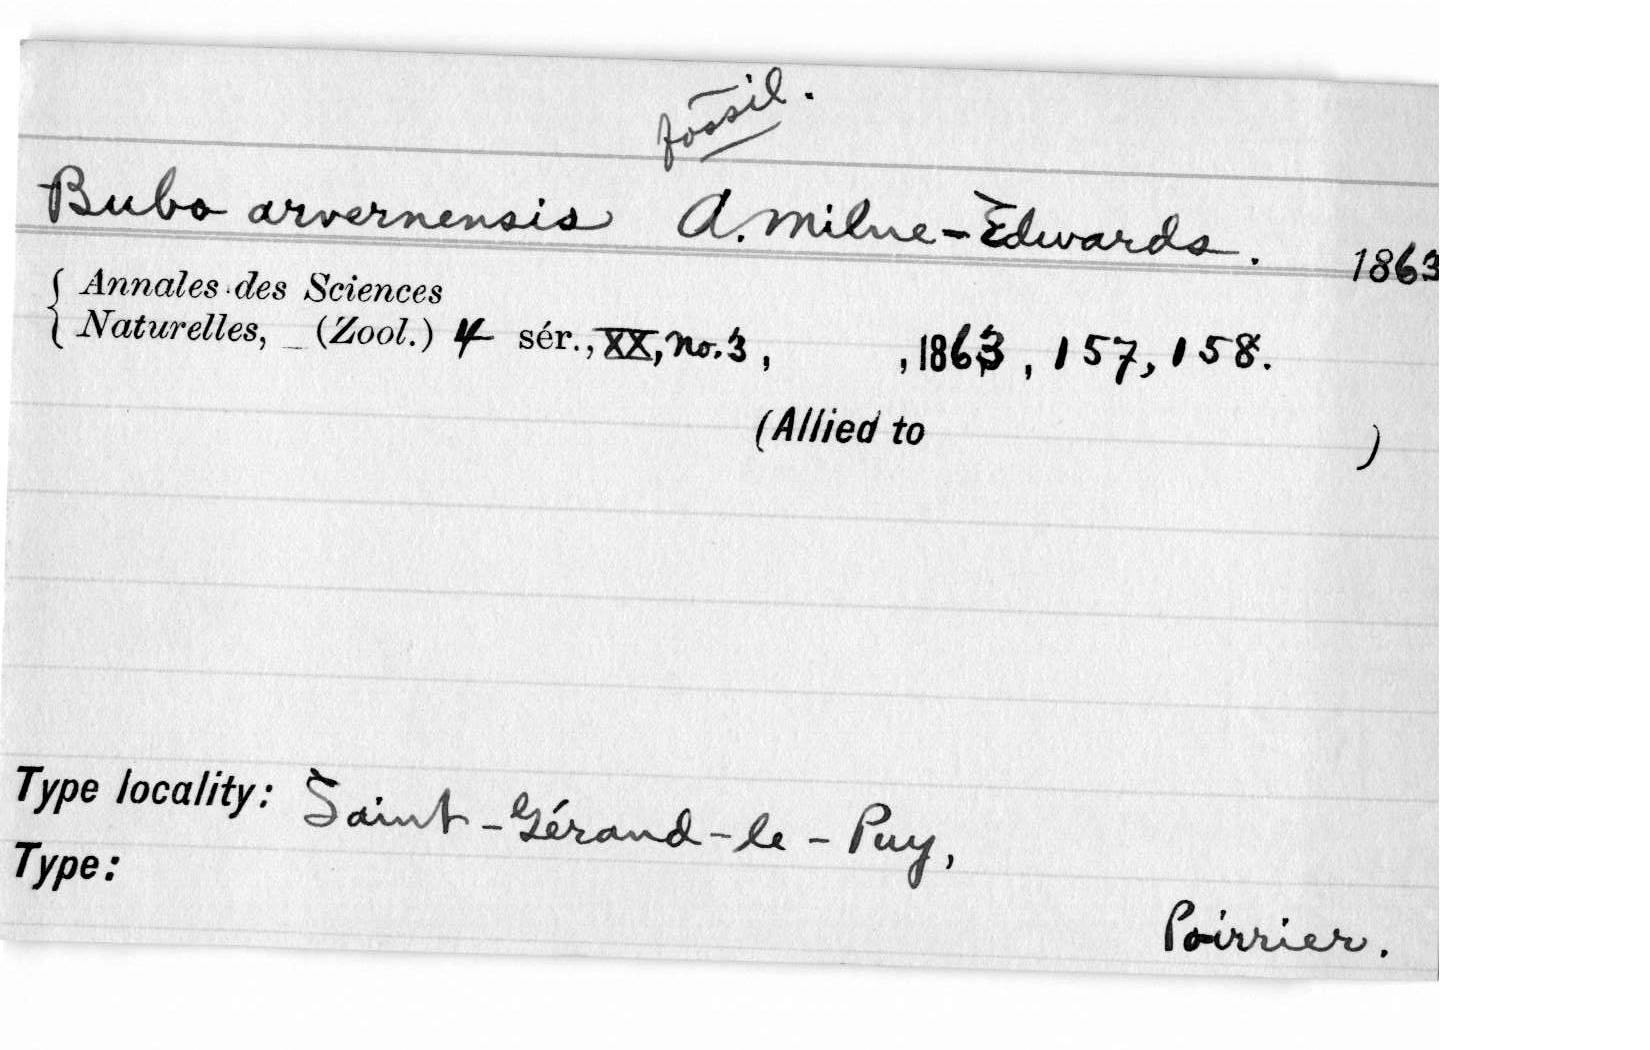 fossil.
Bubo arvernensis A. Milne-Edwards. 1863
{ Annales des Sciences
Naturelles, _ (Zool.) 4 sér., XX, No. 3, , 1863, 157, 158.
(Allied to )
Type locality: Saint-Gérand-le-Puy,
Type:
Poirrier.